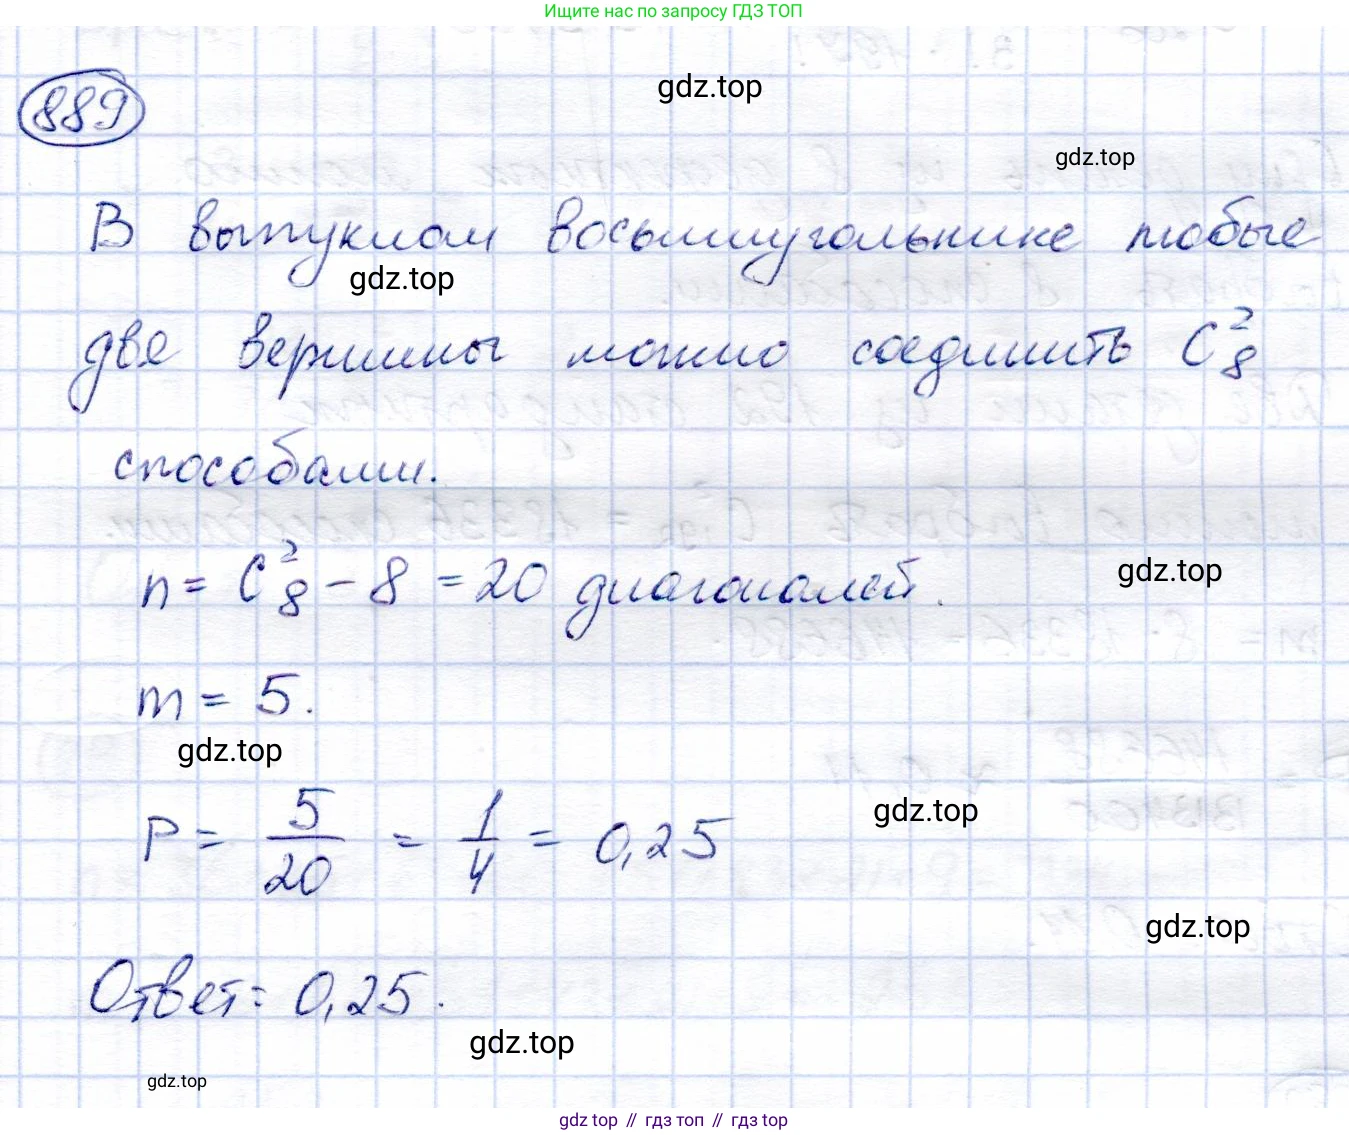 Ищите нас по запросу ГДЗ ТОП
889
gdz.top
gdz.top
В выпуклом восьмиугольнике любые
gdz.top
две вершины можно соединить C²₈
способами.
n = C²₈ - 8 = 20 диагоналей.
gdz.top
m = 5.
gdz.top
P = 5/20 = 1/4 = 0,25
gdz.top
gdz.top
Ответ: 0,25.
gdz.top
gdz.top
gdz top // гдз топ // гдз top